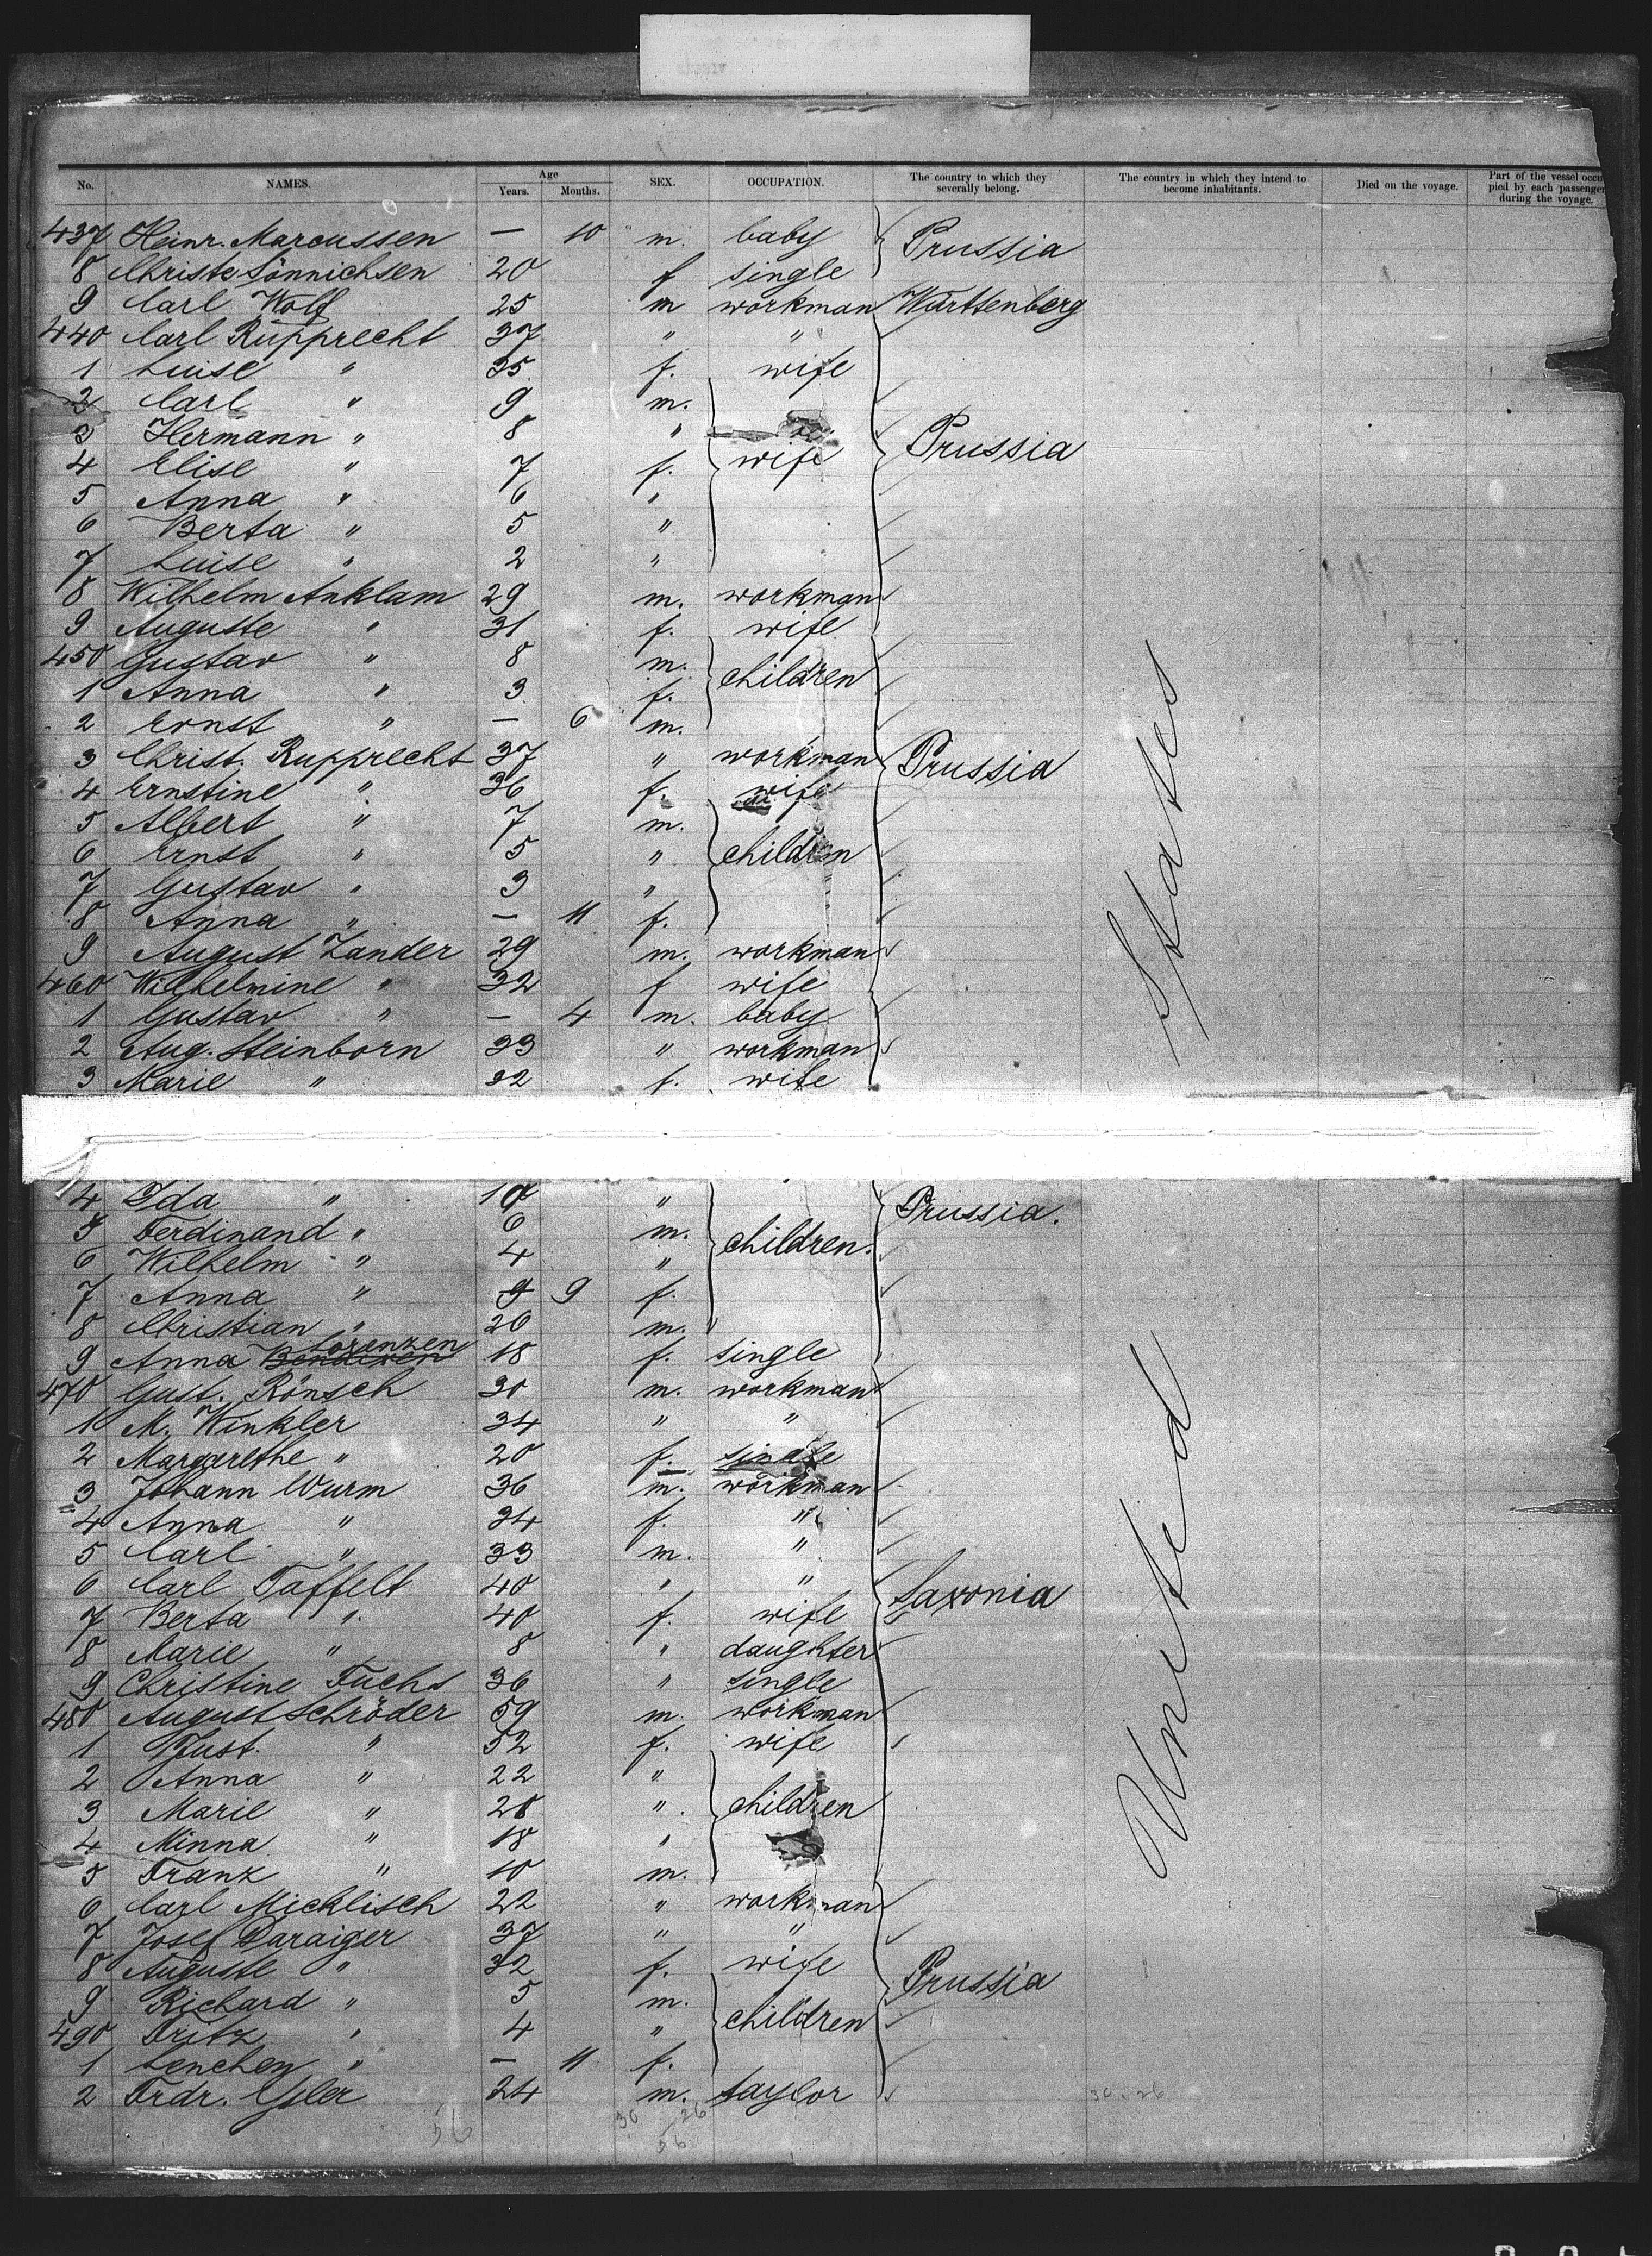 No. NAMES. Age Years. Months. SEX. OCCUPATION. The country to which they severally belong. The country in which they intend to become inhabitants. Died on the voyage. Part of the vessel occupied by each passenger during the voyage.
437 Heinr. Marcussen — 10 m. baby Prussia
8 Christe Sönnichsen 20 f single
9 Carl Wolf 25 m workman Württenberg
440 Carl Rupprecht 37 " "
1 Luise " 35 f. wife
2 Carl " 9 m.
3 Hermann " 8 " Prussia
4 Elise " 7 f. wife
5 Anna " 6 "
6 Berta " 5 "
7 Luise " 2 "
8 Wilhelm Anklam 29 m. workman
9 Auguste " 31 f. wife
450 Gustav " 8 m. children
1 Anna " 3 f.
2 Ernst " — 6 m.
3 Christ. Rupprecht 37 " workman Prussia
4 Ernstine " 36 f. wife
5 Albert " 7 m.
6 Ernst " 5 " children
7 Gustav " 3 "
8 Anna " — 11 f.
9 August Zander 29 m. workman
460 Wilhelmine " 32 f wife
1 Gustav " — 4 m. baby
2 Aug. Steinborn 33 " workman
3 Marie " 32 f. wife
4 Ida " 10 " Prussia.
5 Ferdinand " 6 m. children.
6 Wilhelm " 4 "
7 Anna " 9 9 f.
8 Christian " 26 m.
9 Anna Lorenzen 18 f. single
470 Gust. Rönsch 30 m. workman
1 M. Winkler 34 " "
2 Margarethe " 20 f. single
3 Johann Wurm 36 m. workman
4 Anna " 34 f. "
5 Carl " 33 m. "
6 Carl Taffelt 40 " " Saxonia
7 Berta " 40 f. wife
8 Marie " 8 " daughter
9 Christine Fuchs 36 " single
480 August Schröder 59 m. workman
1 Just. " 52 f. wife
2 Anna " 22 "
3 Marie " 20 " children
4 Minna " 18 "
5 Franz " 10 m.
6 Carl Micklisch 22 " workman
7 Josef Daraiger 37 " "
8 Auguste " 32 f. wife Prussia
9 Richard " 5 m.
490 Fritz " 4 " children
1 Lenchen " — 11 f.
2 Frdr. Gsler 24 m. taylor
United States
56 30 26 56 30. 26